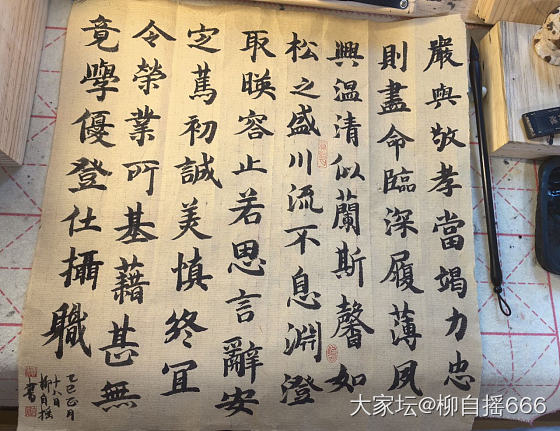 嚴與敬孝當竭力忠
則盡命臨深履薄夙
興温清似蘭斯馨如
松之盛川流不息淵澄
取暎容止若思言辭安
定篤初誠美慎終宜
令榮業所基藉甚無
竟學優登仕攝職
乙巳正月
十八日
柳自摇
書
大家坛@柳自摇666